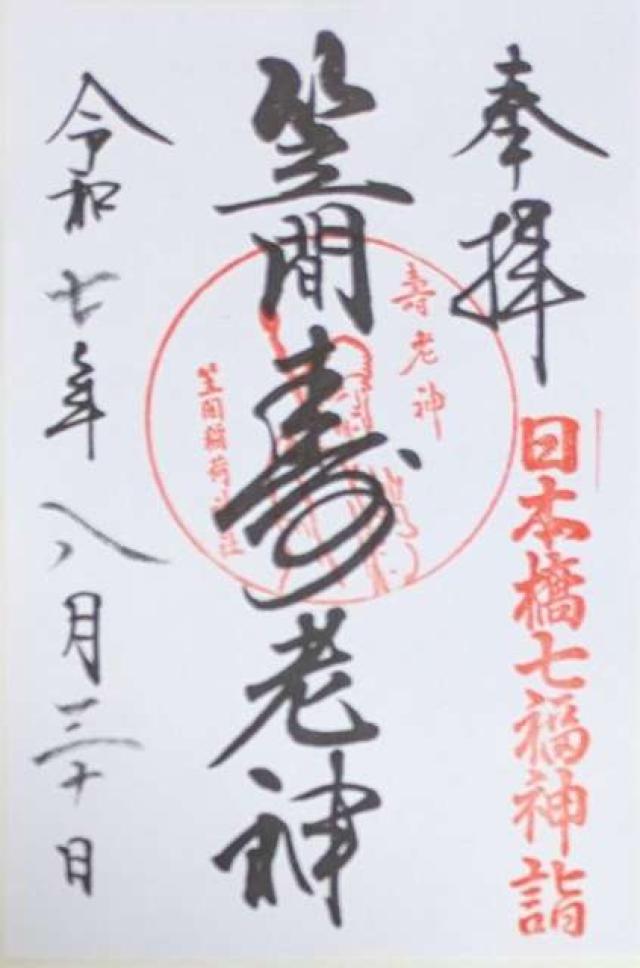 奉拝
日本橋七福神詣
笠間寿老神
壽老神
笠間稲荷神社
令和七年八月三十日